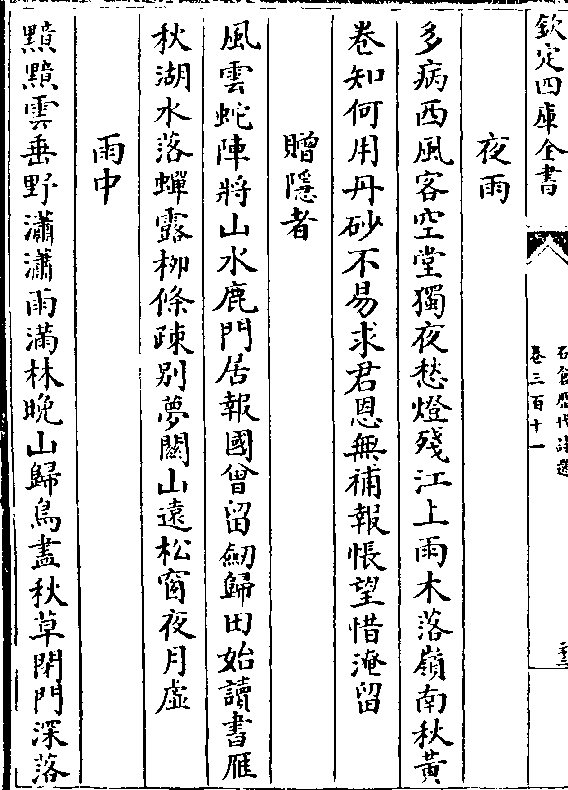 欽定四庫全書
石倉歴代詩選
卷三百十一
夜雨
多病西風客空堂獨夜愁燈殘江上雨木落嶺南秋黄
卷知何用丹砂不易求君恩無補報悵望惜淹留
贈隱者
風雲蛇陣將山水鹿門居報國曾留劒歸田始讀書雁
秋湖水落蟬露栁條疎别夢關山遠松窗夜月虚
雨中
㸃㸃雲垂野瀟瀟雨滿林晩山歸鳥盡秋草閉門深落